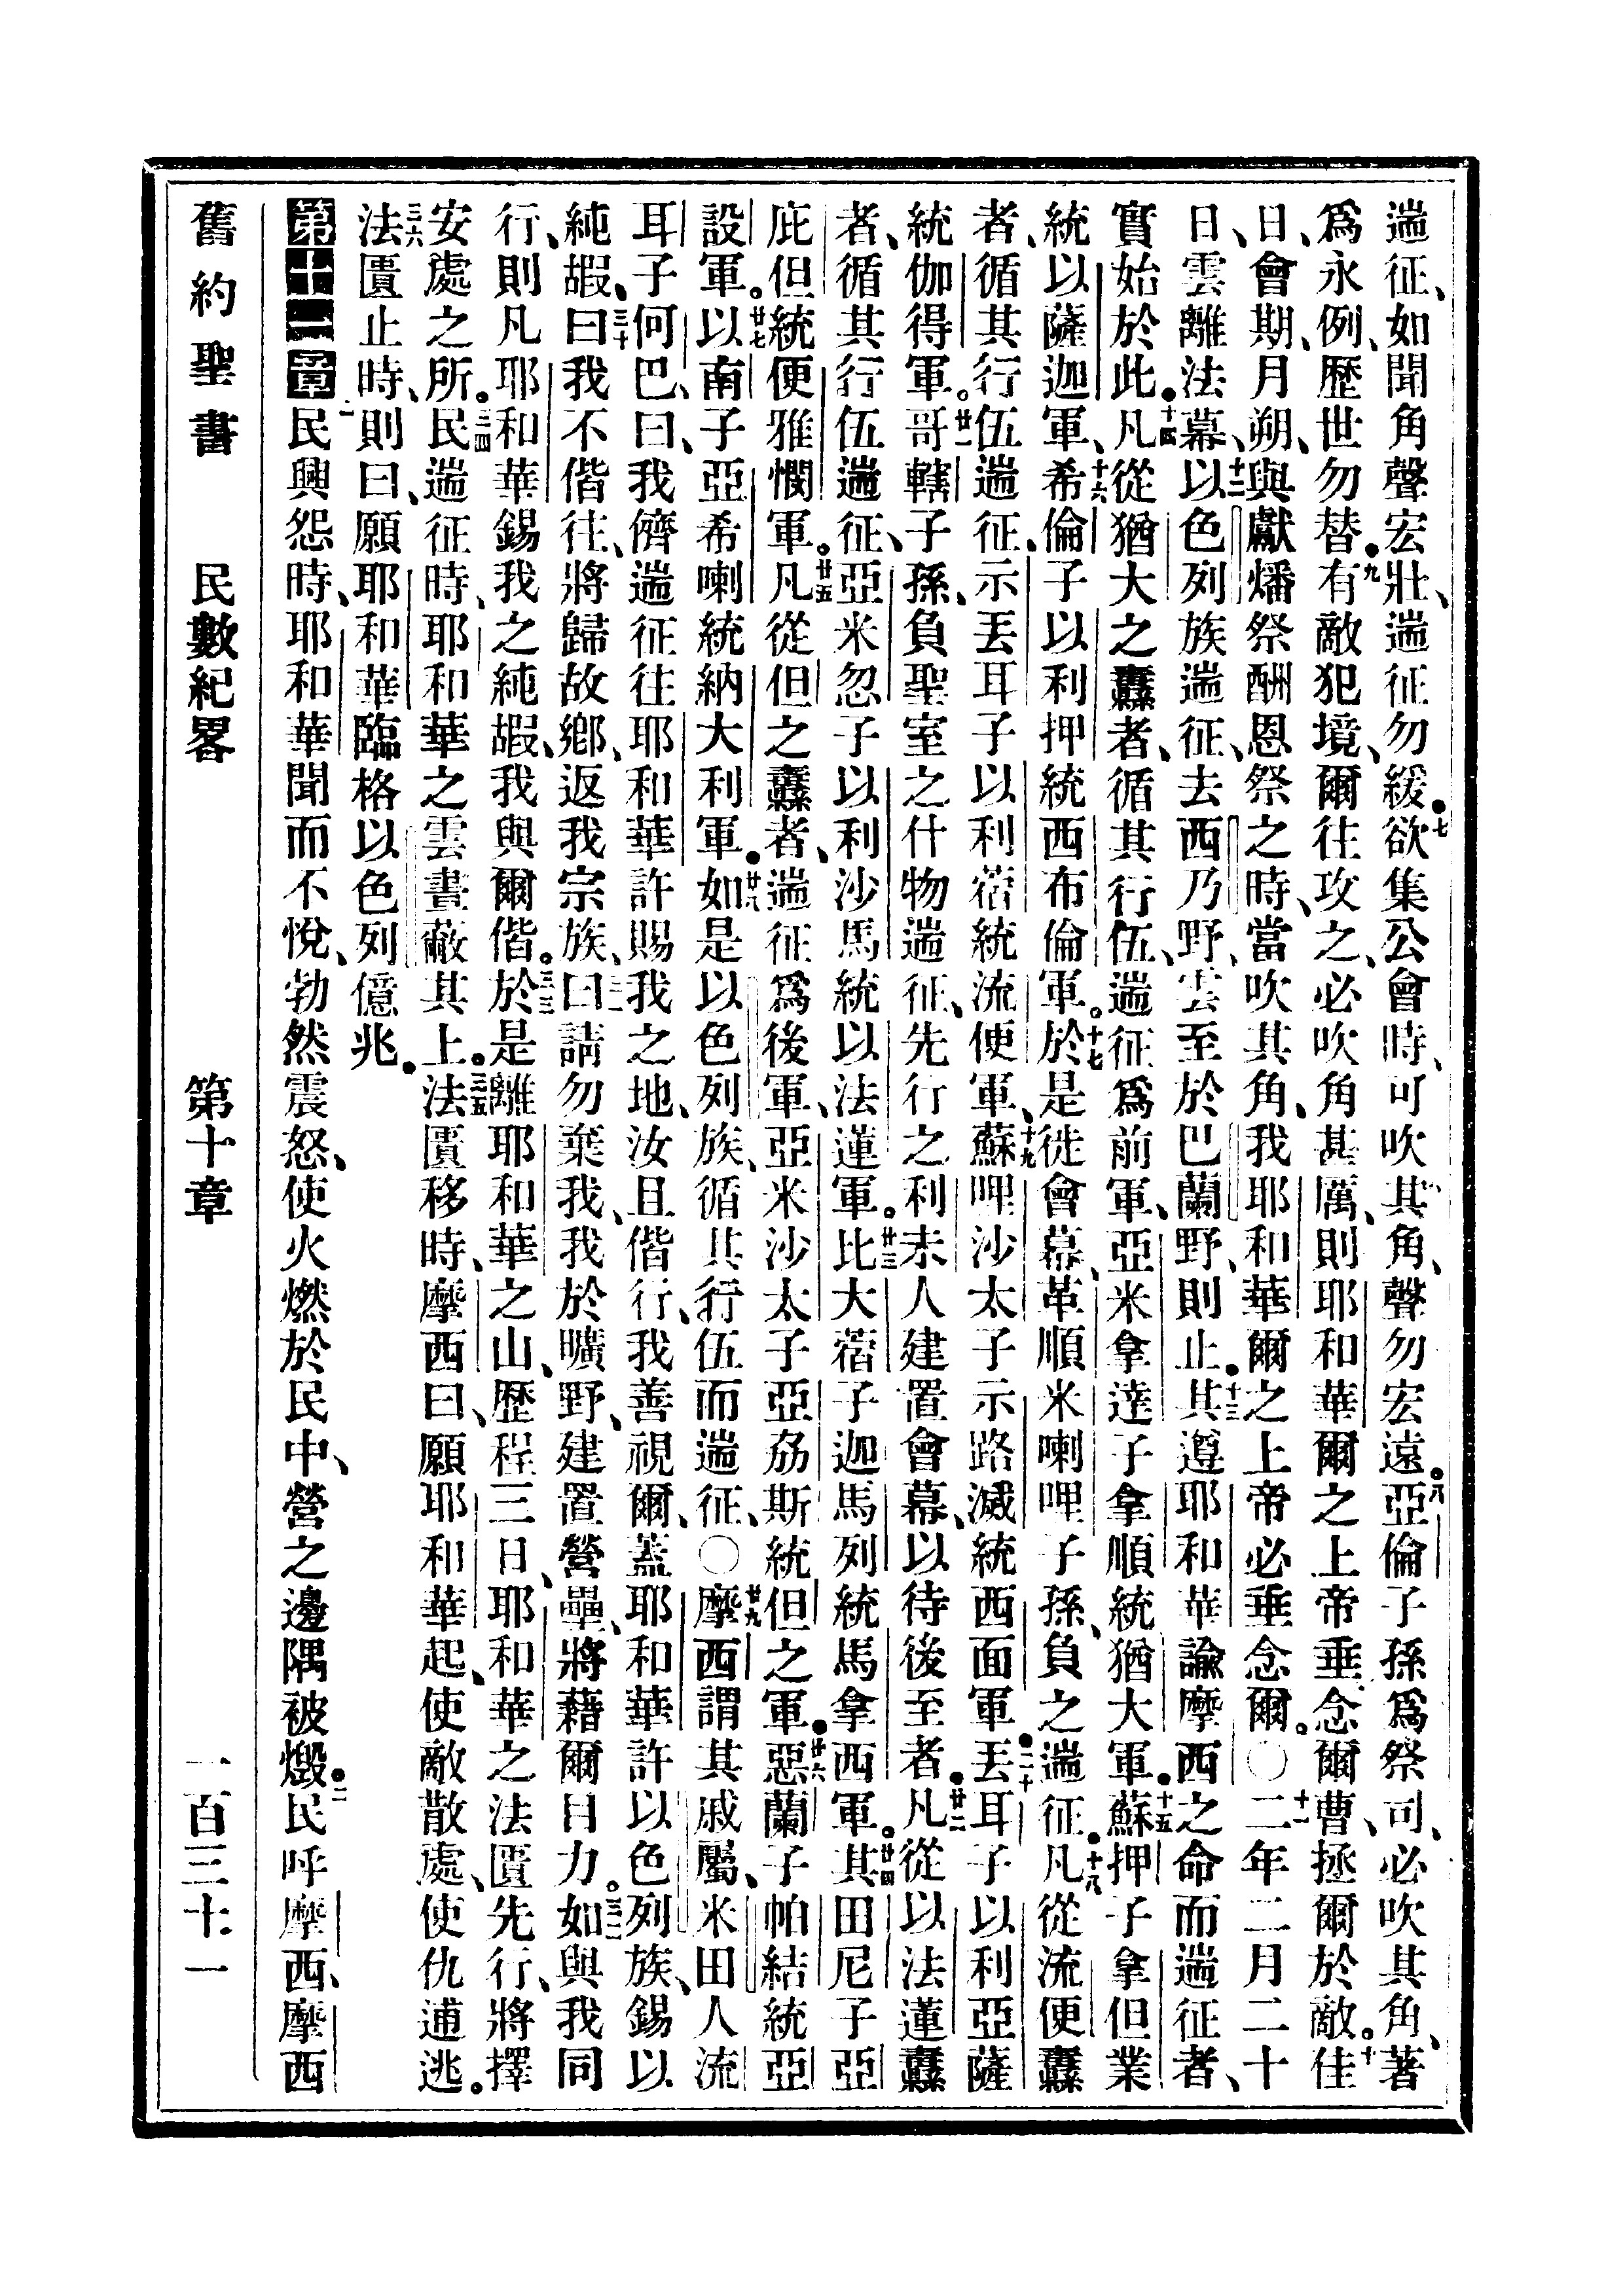 遄征、如聞角聲宏壯、遄征勿緩、七欲集公會時、可吹其角、聲勿宏遠。八亞倫子孫爲祭司、必吹其角、著
爲永例、歷世勿替。九有敵犯境、爾往攻之、必吹角甚厲、則耶和華爾之上帝垂念爾曹、拯爾於敵。十佳
日、會期、月朔、與獻燔祭酬恩祭之時、當吹其角、我耶和華爾之上帝必垂念爾。〇十一二年二月二十
日、雲離法幕、十二以色列族遄征、去西乃野、雲至於巴蘭野、則止。十三其遵耶和華諭摩西之命而遄征者、
實始於此。十四凡從猶大之纛者、循其行伍、遄征爲前軍、亞米拿達子拿順統猶大軍。十五蘇押子拿但業
統以薩迦軍、十六希倫子以利押統西布倫軍。十七於是徙會幕、革順米喇哩子孫、負之遄征。十八凡從流便纛
者、循其行伍遄征、示丟耳子以利蓿統流便軍、十九蘇哩沙太子示路滅統西面軍。二十丟耳子以利亞薩
統伽得軍。廿一哥轄子孫、負聖室之什物遄征、先行之利未人建置會幕、以待後至者。廿二凡從以法蓮纛
者、循其行伍遄征、亞米忽子以利沙馬統以法蓮軍。廿三比大蓿子迦馬列統馬拿西軍。廿四其田尼子亞
庇但統便雅憫軍。廿五凡從但之纛者、遄征爲後軍、亞米沙太子亞希斯統但之軍。廿六惡蘭子帕結統亞
設軍。廿七以南子亞希喇統納大利軍。廿八如是以色列族、循其行伍而遄征、〇廿九摩西謂其戚屬、米田人流
耳子何巴、曰、我儕遄征往耶和華許賜我之地、汝且偕行、我善視爾、蓋耶和華許以色列族、錫以
純嘏、三十曰我不偕往、將歸故鄉、返我宗族、三一曰請勿棄我、我於曠野、建置營壘、將藉爾目力。三二如與我同
行、則凡耶和華錫我之純嘏、我與爾偕。三三於是離耶和華之山、歷程三日、耶和華之法匱先行、將擇
安處之所。三四民遄征時、耶和華之雲晝蔽其上。三五法匱移時、摩西曰、願耶和華起、使敵散處、使仇逋逃。
三六法匱止時、則曰、願耶和華臨格以色列億兆。
第十一章一民興怨時、耶和華聞而不悅、勃然震怒、使火燃於民中、營之邊隅被燬。二民呼摩西、摩西
舊約聖書 民數紀畧 第十章 一百三十一